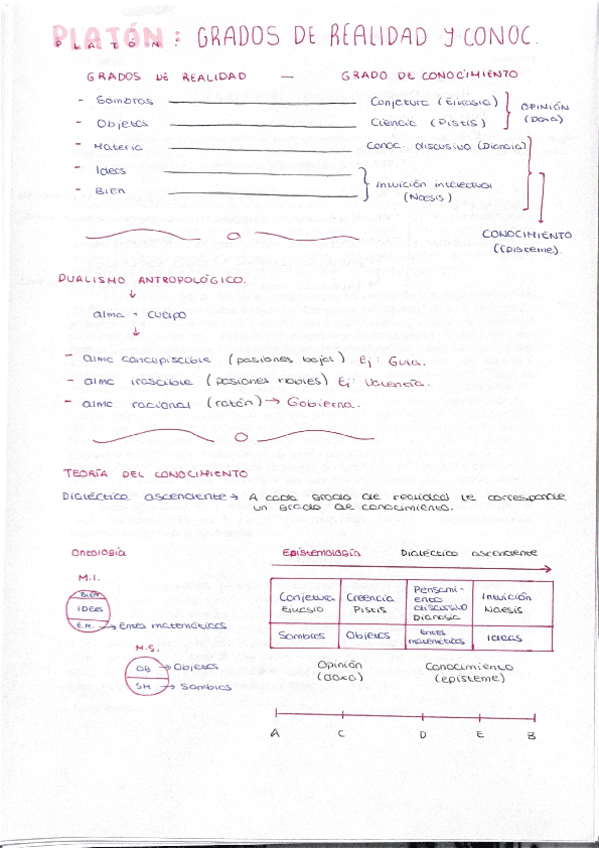 PLATÓN: GRADOS DE REALIDAD Y CONOC.
GRADOS DE REALIDAD — GRADO DE CONOCIMIENTO
- Sombras Conjetura (Eikasia)
- Objetos Ciencia (Pistis)
OPINIÓN (Doxa)
- Materia Conoc. discusivo (Dianoia)
- Ideas
- Bien
Intuición intelectual
(Noesis)
CONOCIMIENTO
(Episteme).
DUALISMO ANTROPOLÓGICO.
alma + cuerpo
- alma concupiscible (pasiones bajas) Ej: Gula.
- alma irascible (pasiones nobles) Ej: Valentía.
- alma racional (razón) → Gobierna.
TEORÍA DEL CONOCIMIENTO
Dialéctica ascendente → A cada grado de realidad le corresponde
un grado de conocimiento.
Ontología
M.I.
BIEN
IDEAS
E.M. → Entes matemáticos
M.S.
OB → Objetos
SM → Sombras
Epistemología Dialéctica ascendente
Conjetura
Eikasia
Creencia
Pistis
Pensami-
ento
discusivo
Dianoia
Intuición
Noesis
Sombras
Objetos
Entes
matemáticos
Ideas
Opinión
(doxa)
Conocimiento
(episteme)
A C D E B